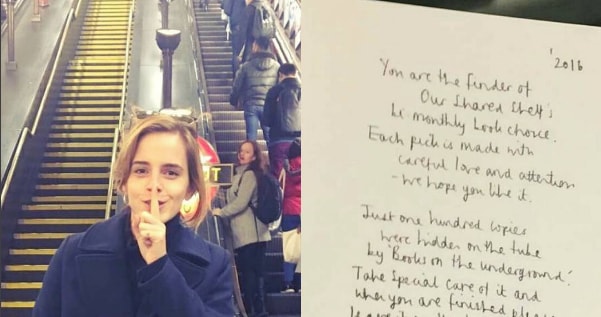 '2016
You are the finder of
Our Shared Shelf's
bi monthly book choice.
Each pick is made with
careful love and attention
- we hope you like it.
Just one hundred copies
were hidden on the tube
by 'Books on the underground'.
Take special care of it and
when you are finished please